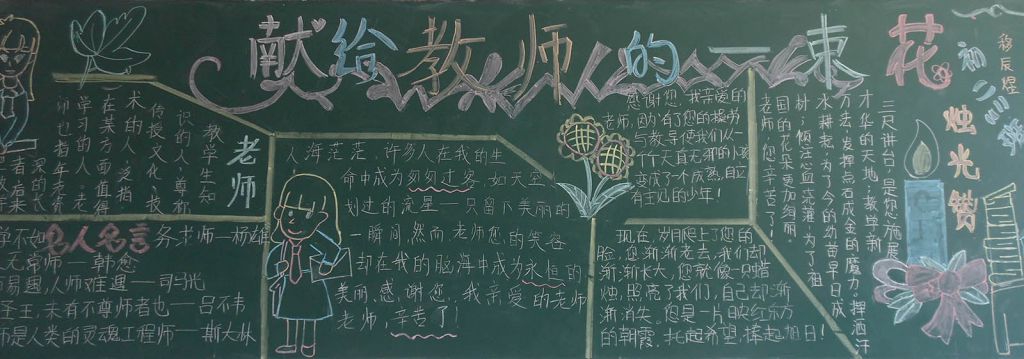 献给教师的一束花
初二三班
老师
教学生知
识的人,尊称
传授文化、技
术的人,泛指
在某方面值得
学习的人。老
师也指年老资
名人名言
务求师——杨雄
无常师——韩愈
易遇,人师难遭——司马光
圣王,未有不尊师者也——吕不韦
师是人类的灵魂工程师——斯大林
人海茫茫,许多人在我的生
命中成为匆匆过客,如天空
划过的流星——只留下美丽的
一瞬间,然而,老师您的笑容
却在我的脑海中成为永恒的
美丽,感谢您,我亲爱的老师
老师,辛苦了!
感谢您,我亲爱的
老师,因为有了您的操劳
与教导使我们从一
个个天真无邪的小孩
变成了一个成熟,自立
有主见的少年!
现在,岁月爬上了您的
脸,您渐渐老去,我们却
渐渐长大,您就像一只蜡
烛,照亮了我们,自己却渐
渐消失,您是一片映红东方
的朝霞,托起希望,捧起旭日!
烛光赞
三尺讲台,是您施展
才华的天地;教学新
方法,发挥点石成金的魔力;挥洒汗
水耕耘,为了今的幼苗早日成
树;倾注心血浇灌,为了祖
国的花朵更加绚丽。
老师,您辛苦了!